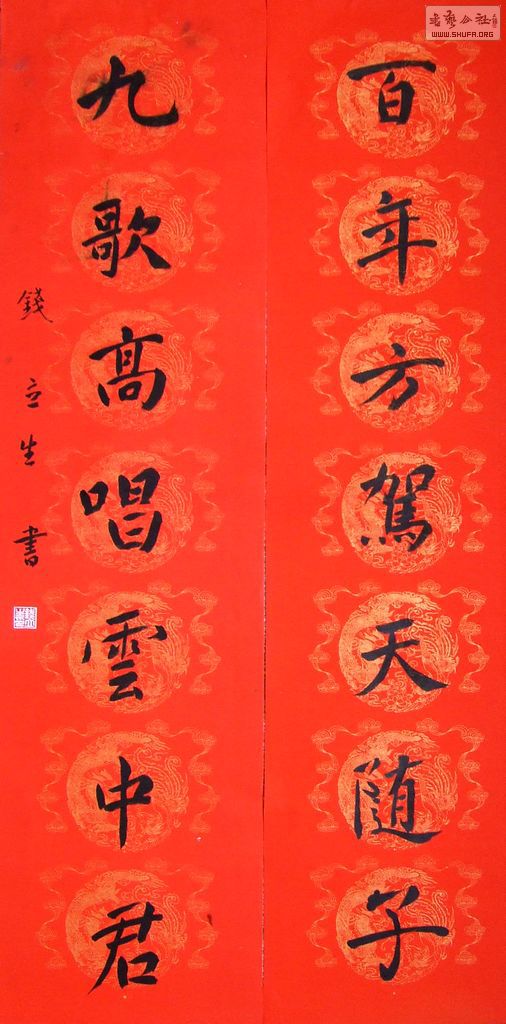 百年方駕天随子
九歌高唱雲中君
錢立生書
書藝公社
WWW.SHUFA.ORG